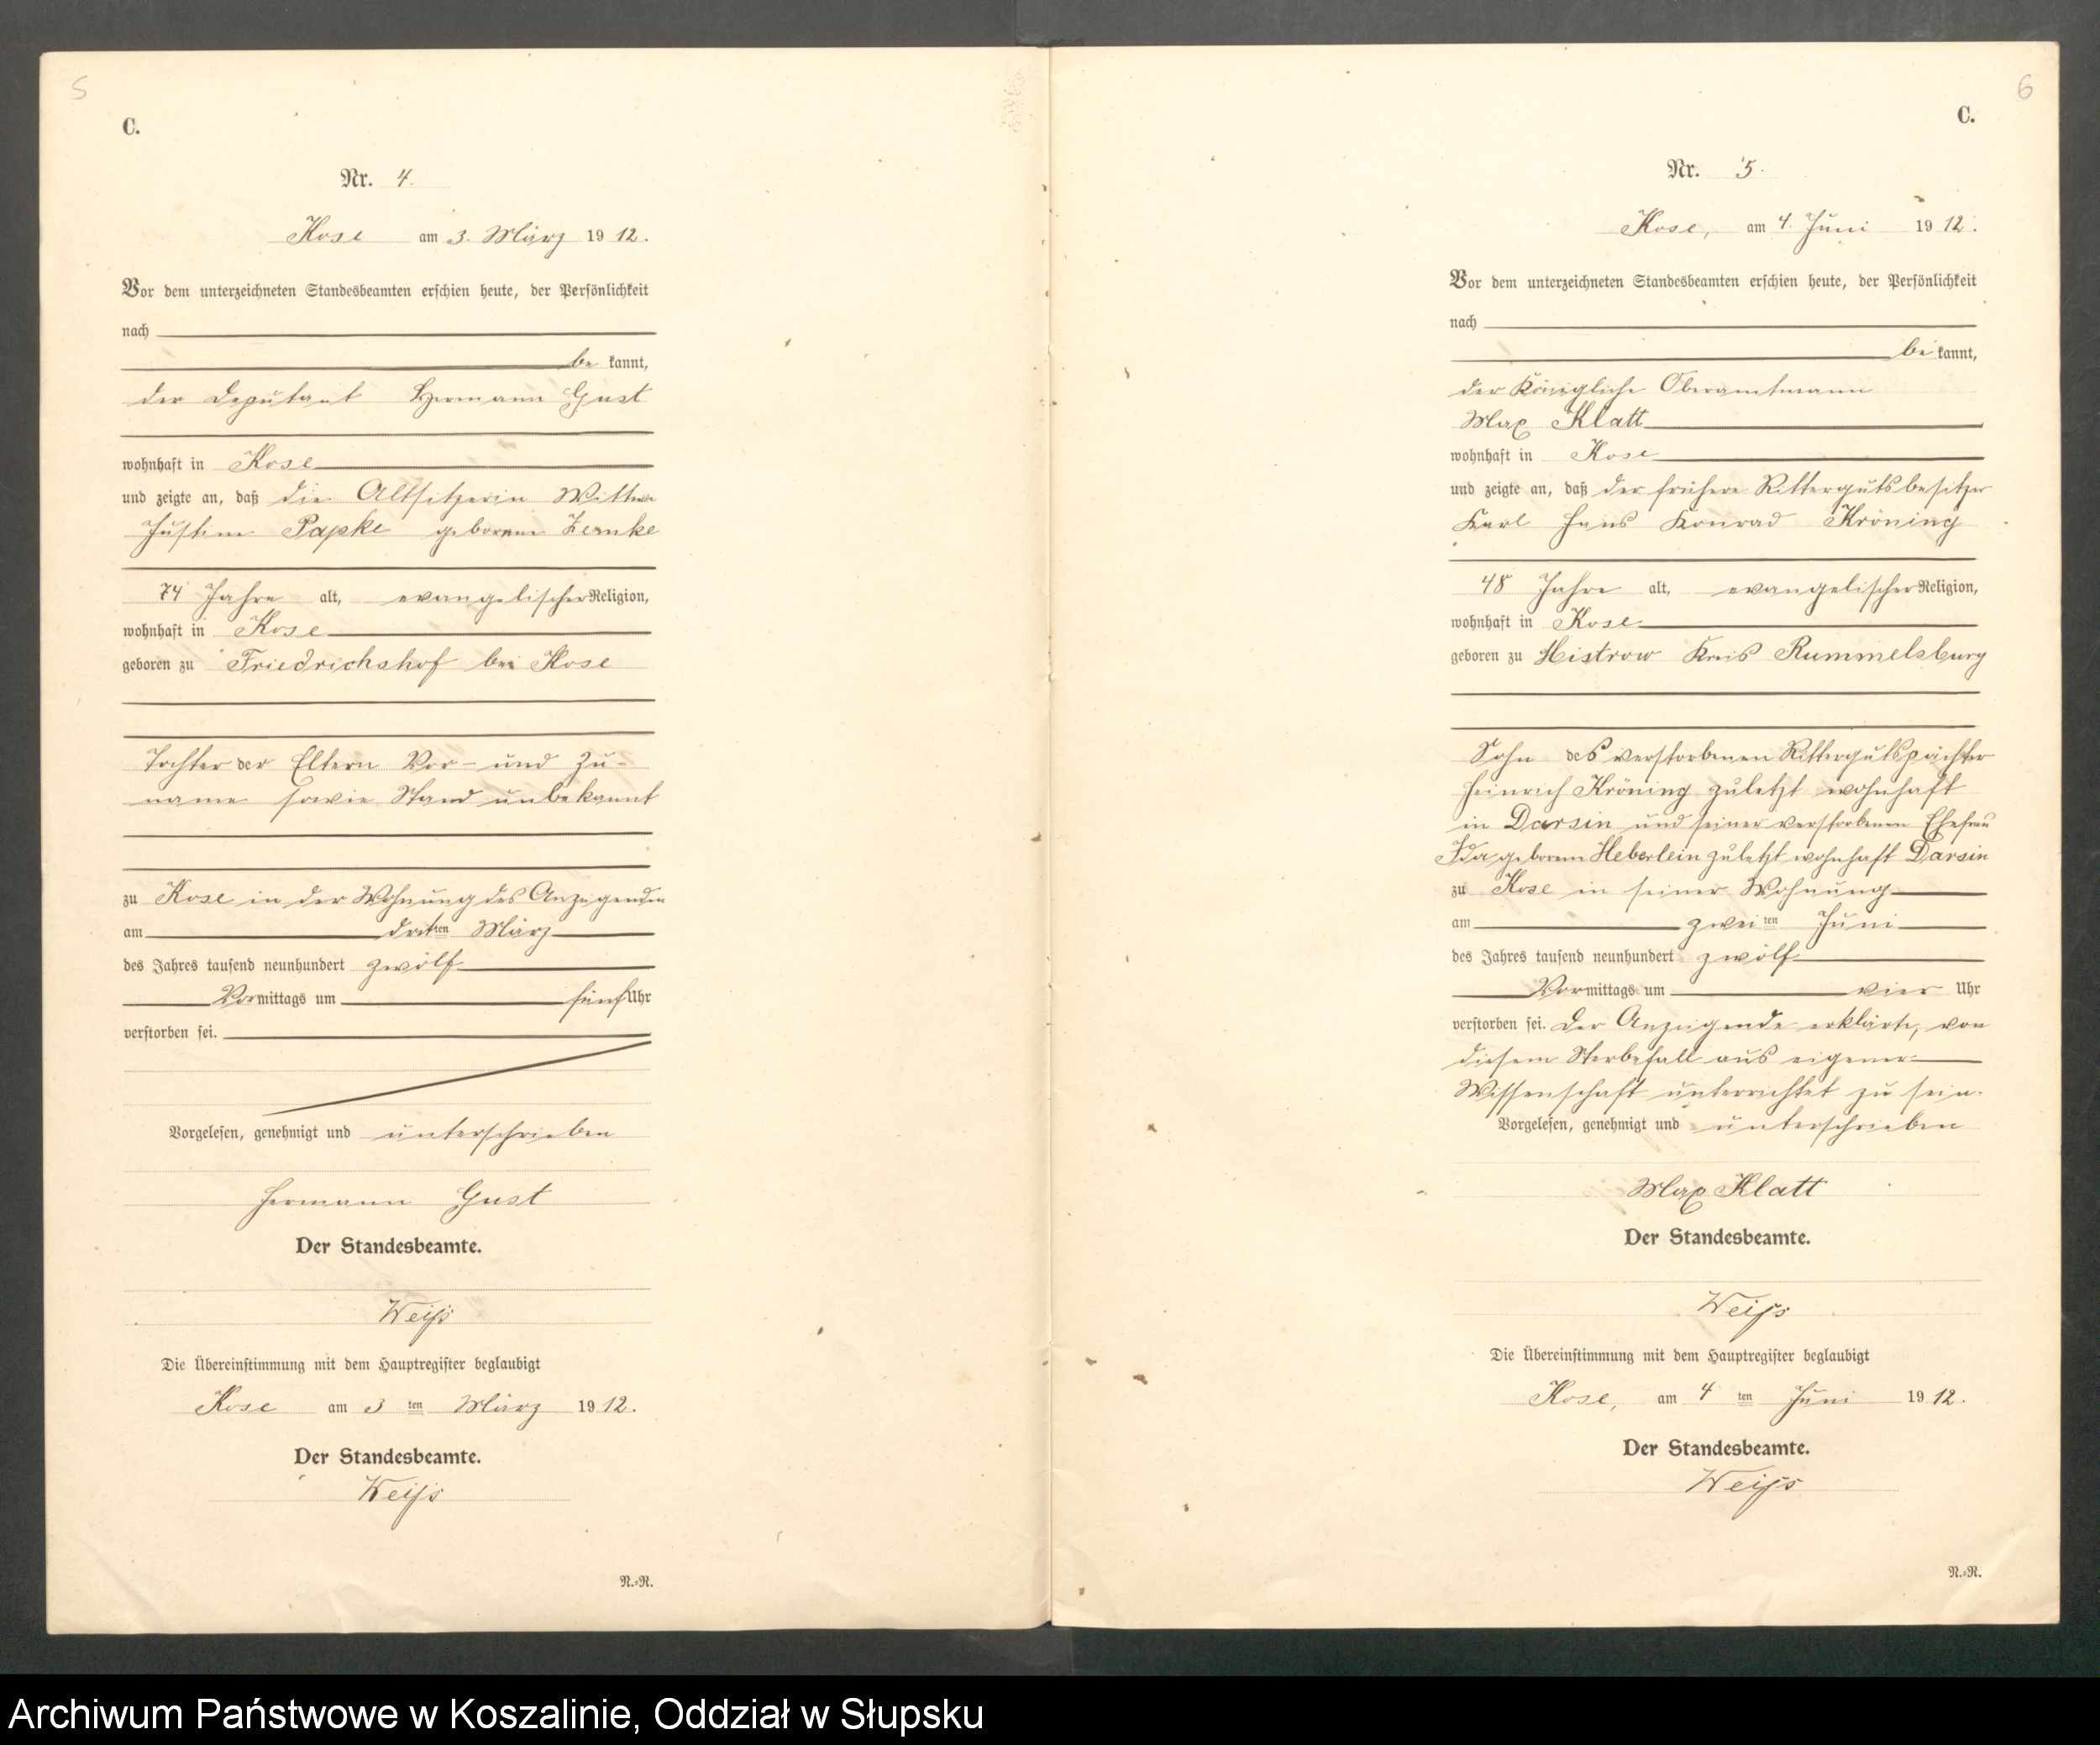 5
C.
Nr. 4.
Kose am 3. März 1912.
Vor dem unterzeichneten Standesbeamten erschien heute, der Persönlichkeit
nach
be kannt,
der Deputant Hermann Gust
wohnhaft in Kose
und zeigte an, daß die Altsitzerin Witwe
Justine Papke geborene Zemke
74 Jahre alt, evangelischer Religion,
wohnhaft in Kose
geboren zu Friedrichshof bei Kose
Tochter der Eltern Vor- und Zu-
name sowie Stand unbekannt
zu Kose in der Wohnung des Anzeigenden
am dritten März
des Jahres tausend neunhundert zwölf
Vormittags um fünf Uhr
verstorben sei.
Vorgelesen, genehmigt und unterschrieben
Hermann Gust
Der Standesbeamte.
Weiß
Die Übereinstimmung mit dem Hauptregister beglaubigt
Kose am 3 ten März 1912.
Der Standesbeamte.
Weiß
N.=R.
6
C.
Nr. 5.
Kose, am 4. Juni 1912.
Vor dem unterzeichneten Standesbeamten erschien heute, der Persönlichkeit
nach
be kannt,
der Königliche Oberamtmann
Max Klatt
wohnhaft in Kose
und zeigte an, daß der frühere Rittergutsbesitzer
Karl Hans Konrad Kröning
48 Jahre alt, evangelischer Religion,
wohnhaft in Kose
geboren zu Kreis Rummelsburg
Sohn des verstorbenen Rittergutspächter
Heinrich Kröning zuletzt wohnhaft
in Darsin und seiner verstorbenen Ehefrau
Ida geborene Heberlein zuletzt wohnhaft Darsin
zu Kose in seiner Wohnung
am zweiten Juni
des Jahres tausend neunhundert zwölf
Vormittags um vier Uhr
verstorben sei. Der Anzeigende erklärte, von
diesem Sterbefall aus eigener
Wissenschaft unterrichtet zu sein.
Vorgelesen, genehmigt und unterschrieben
Max Klatt
Der Standesbeamte.
Weiß
Die Übereinstimmung mit dem Hauptregister beglaubigt
Kose, am 4 ten Juni 1912.
Der Standesbeamte.
Weiß
N.=R.
Archiwum Państwowe w Koszalinie, Oddział w Słupsku